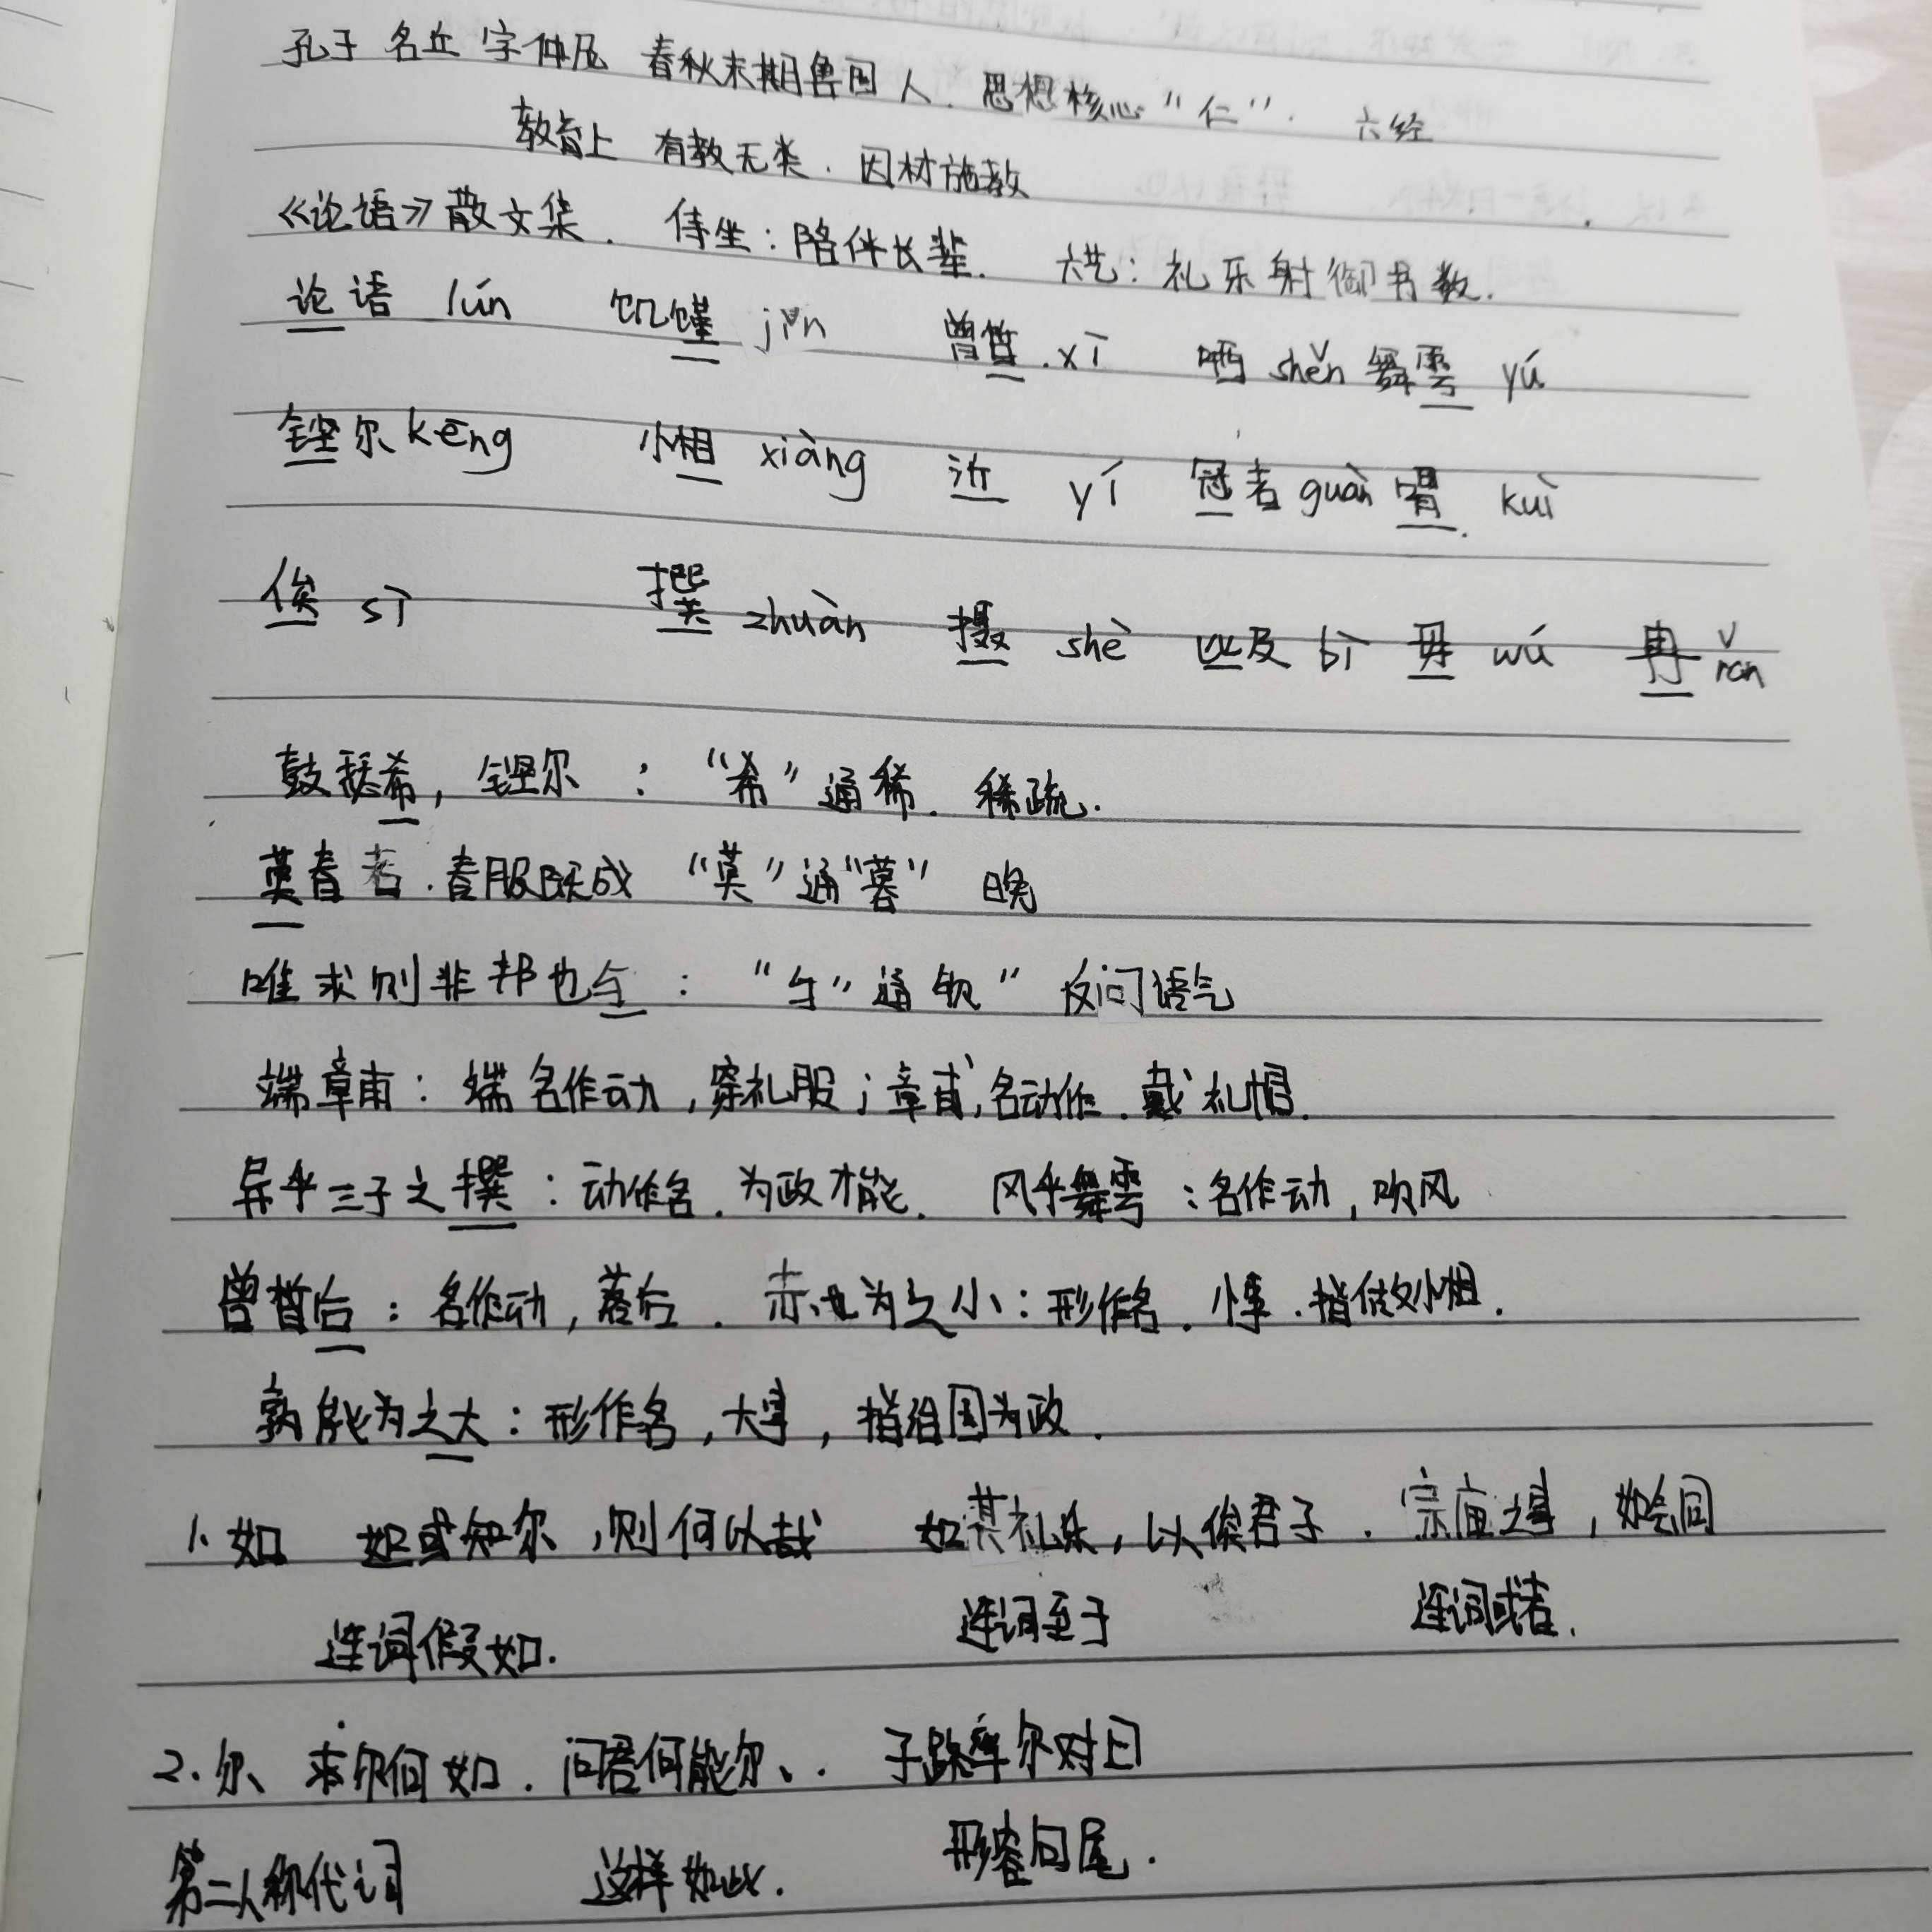 孔子 名丘 字仲尼 春秋末期鲁国人. 思想核心"仁". 六经
教育上 有教无类. 因材施教
《论语》散文集. 侍坐:陪伴长辈. 六艺:礼乐射御书数.
论语 lún 饥馑 jǐn 曾皙.xī 哂 shěn 舞雩 yú
铿尔 kēng 小相 xiàng 沂 yí 冠者 guàn 喟. kuì
俟 sì 撰 zhuàn 摄 shè 比及 bì 毋 wú 冉 rǎn
鼓瑟希,铿尔:"希"通稀. 稀疏.
莫春者.春服既成 "莫"通"暮" 晚
唯求则非邦也与:"与"通欤" 反问语气
端章甫:端名作动,穿礼服;章甫,名动作.戴礼帽.
异乎三子之撰:动作名.为政才能. 风乎舞雩:名作动,吹风
曾皙后:名作动,落后. 赤也为之小:形作名.小事.指做小相.
孰能为之大:形作名,大事,指治国为政.
1.如 如或知尔,则何以哉 如其礼乐,以俟君子. 宗庙之事,如会同
连词假如. 连词至于 连词或者.
2.尔、求尔何如. 问君何能尔、. 子路率尔对曰
第二人称代词 这样如此. 形容句尾.